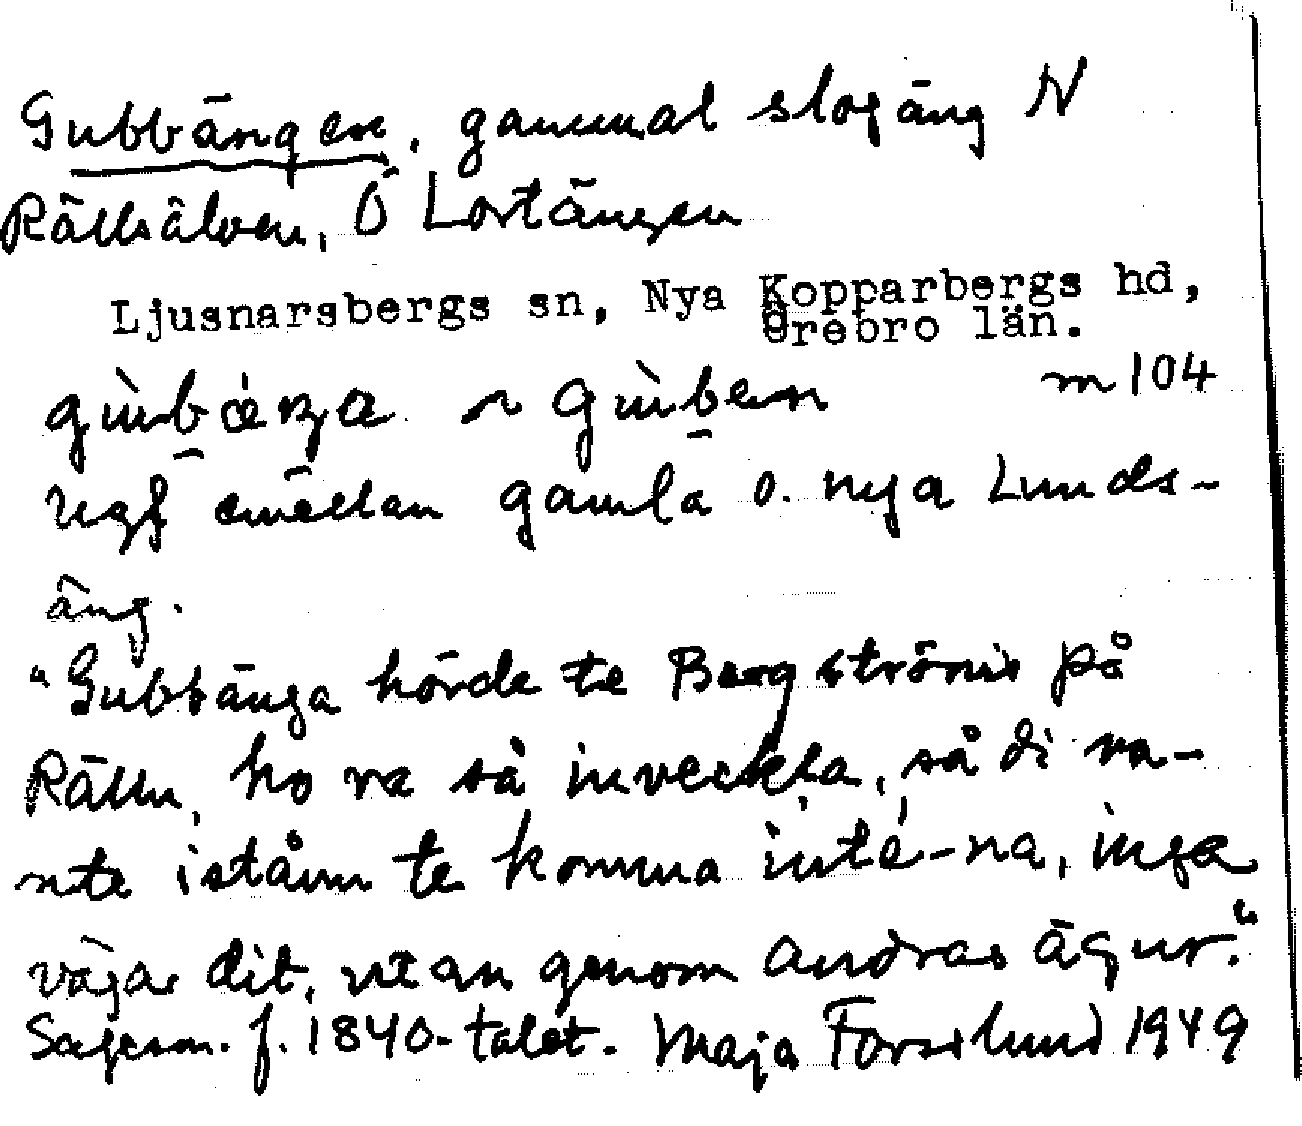 Gubbängen, gammal slogäng N
Rällsälven, Ö Lortängen
Ljusnarsbergs sn, Nya Kopparbergs hd,
Örebro län.
m 104
emellan gamla o. nya Lunds-
äng.
"Gubbänga hörde te Bergströms på
Rälln, ho va så inveckla, så di va-
nte istånn te komma inte-na, inga
vägar dit, utan genom andras ägur."
Sagesm. f. 1840-talet. Maja Forsslund 1949